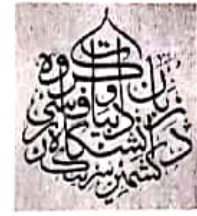 گروه زبان و ادبیات فارسی
دانشگاه کشمیر سرینگر